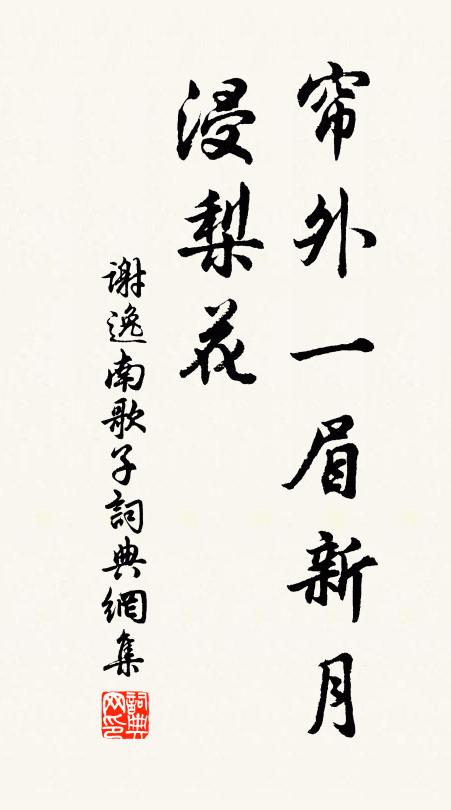 帘外一眉新月
浸梨花
谢逸南歌子詞典網集
詞典网印